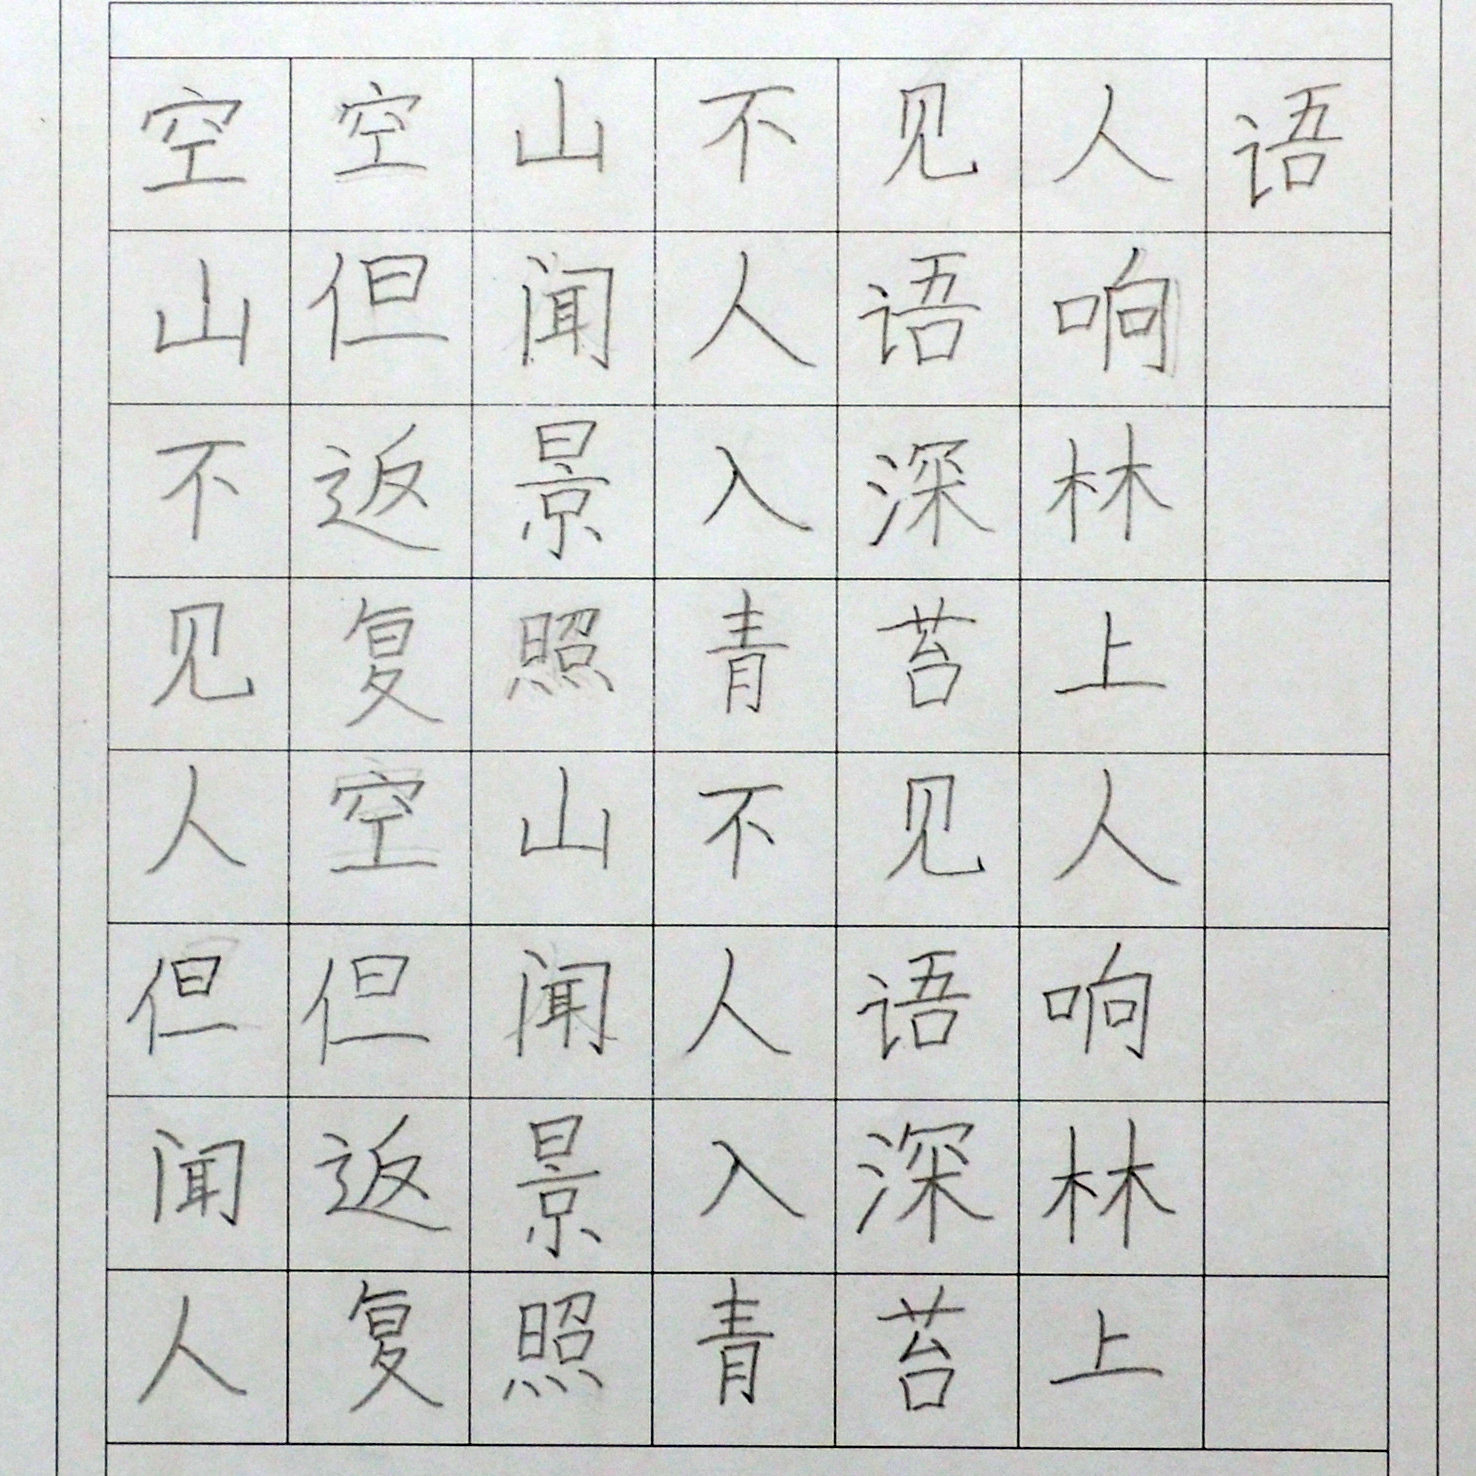 空空山不见人语
山但闻人语响
不返景入深林
见复照青苔上
人空山不见人
但但闻人语响
闻返景入深林
人复照青苔上